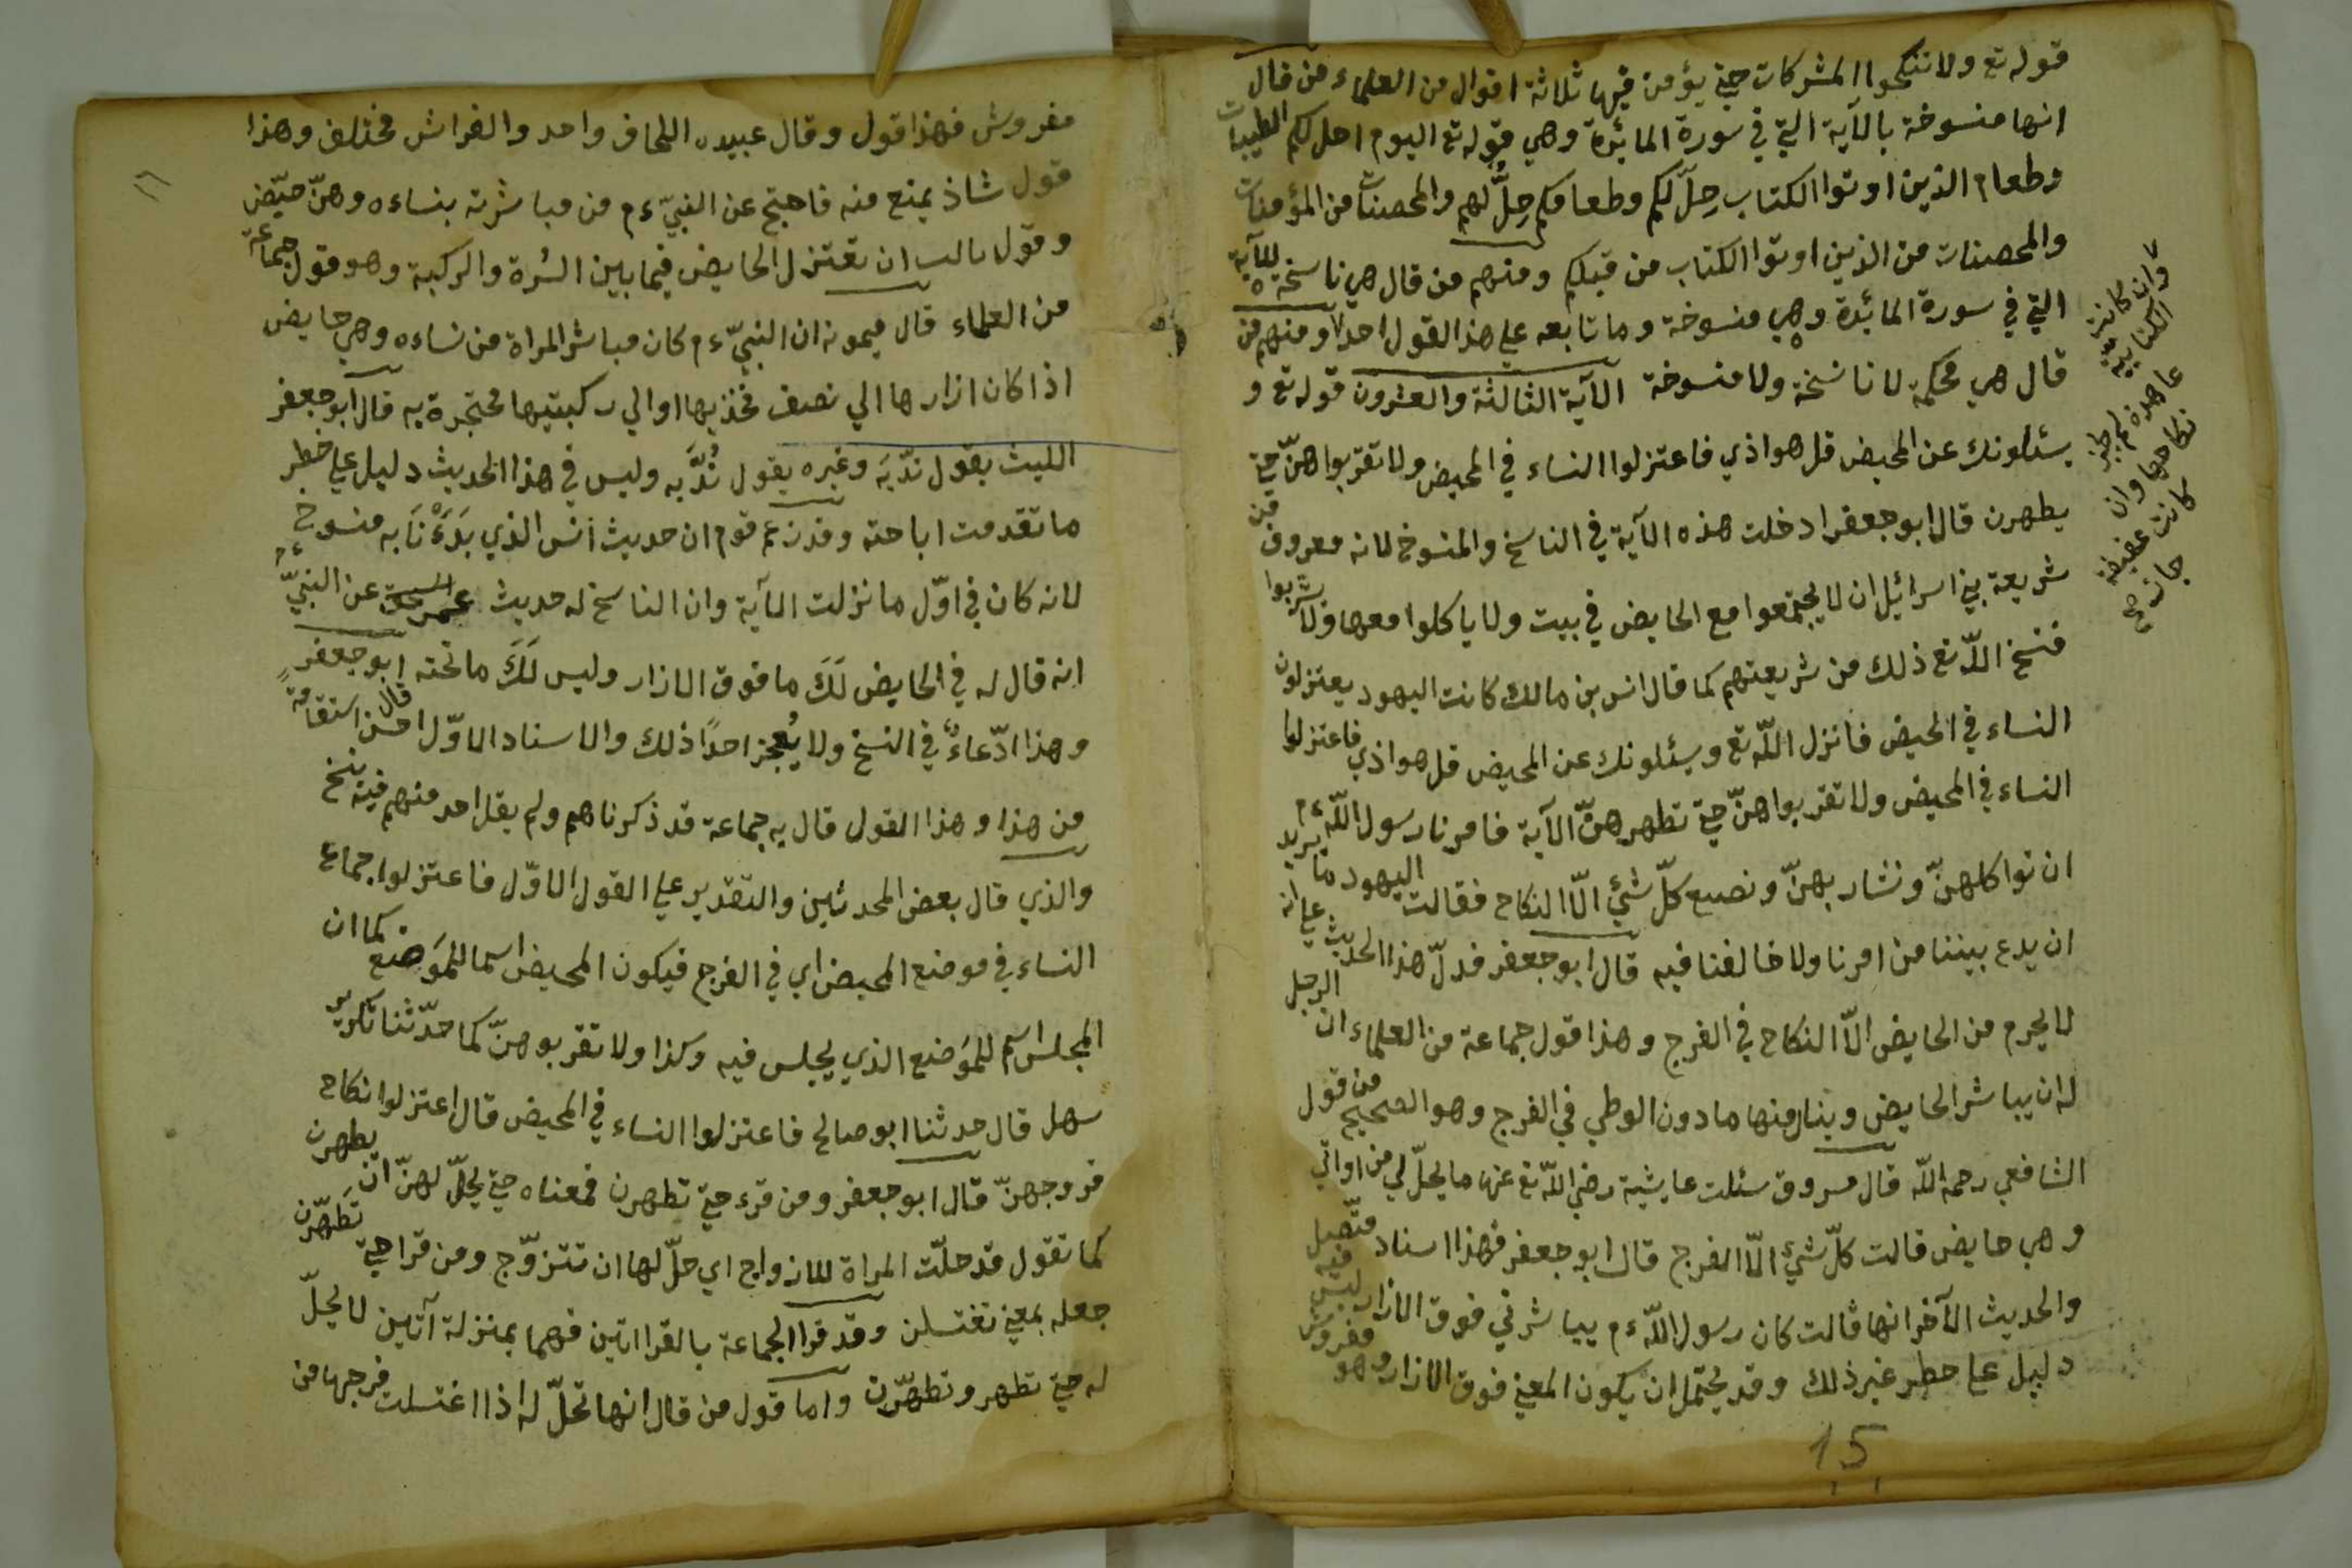 قوله تع ولا تنكحوا المشركات حتي يؤمن فيها ثلاثة اقوال من العلماء من قال
انها منسوخة بالآية التي في سورة المائدة وهي قوله تع اليوم احل لكم الطيبات
وطعام الذين اوتوا الكتاب حِلّ لكم وطعامكم حِلٌّ لهم والمحصنات من المؤمنات
والمحصنات من الذين اوتوا الكتاب من قبلكم ومنهم من قال هي ناسخة للآية
التي في سورة المائدة وهي منسوخة وما تابعه علي هذا القول احد ومنهم من
قال هي محكمة لا ناسخة ولا منسوخة الآية الثالثة والعشرون قوله تع و
يسئلونك عن المحيض قل هو اذي فاعتزلوا النساء في المحيض ولا تقربوا هنّ حتي
يطهرن قال ابو جعفر ادخلت هذه الآية في الناسخ والمنسوخ لانه معروف من
شريعة بني اسرائيل ان لا يجتمعوا مع الحايض في بيت ولا ياكلوا معها ولا يشربوا
فنسخ اللّه تع ذلك من شريعتهم كما قال انس بن مالك كانت اليهود يعتزلون
النساء في المحيض فانزل اللّه تع ويسئلونك عن المحيض قل هو اذي فاعتزلوا
النساء في المحيض ولا تقربوا هنّ حتي تطهر هنّ الآية فامرنا رسول اللّه ءم
ان نواكلهنّ ونشار بهنّ ونصنع كلّ شئ الّا النكاح فقالت اليهود ما يريد
ان يدع بيننا من امرنا ولا خالفنا فيه قال ابو جعفر فدلّ هذا الحديث علي انه
لا يحرم من الحايض الّا النكاح في الفرج وهذا قول جماعة من العلماء ان الرجل
له ان يباشر الحايض وينال منها ما دون الوطي في الفرج وهو الصحيح من قول
الشافعي رحمه اللّه قال مسروق سئلت عايشة رضي اللّه تع عنها ما يحلّ لي من اواتي
وهي حايض قالت كلّ شئ الّا الفرج قال ابو جعفر فهذا اسناد متّصل
والحديث الآخر انها قالت كان رسول اللّه ءم يباشرني فوق الازار ليس فيه
دليل علي حطر غير ذلك وقد يحتمل ان يكون المعني فوق الازار وهو مفروش
وان كانت الكتابية
عاهرة لم يجز
نكاحها وان
كانت عفيفة
جاز صح
15
مفروش فهذا قول وقال عبيده اللحاف واحد والفراش مختلف وهذا
قول شاذ يمنع منه فاحتج عن النبيّ ءم من مباشرته بنساءه وهنّ حيّض
وقول ثالث ان تعتزل الحايض فيما بين السُرة والركبة وهو قول جماعة
من العلماء قال ميمونه ان النبيّ ءم كان مباشر المراة من نساءه وهي حايض
اذا كان ازارها الي نصف فخذيها او الي ركبتيها محتجرة به قال ابو جعفر
الليث يقول ندّبَة وغيره يقول نُدَّبه وليس في هذا الحديث دليل علي خطر
ما تقدمت اباحته وقد زعم قوم ان حديث انس الذي بَدَءْنَا به منسوخ
لانه كان في اوّل ما نزلت الآية وان الناسخ له حديث عن النبيّ ءم
انه قال له في الحايض لَكَ ما فوق الازار وليس لَكَ ما تحته قال ابو جعفر
وهذا ادّعاءٌ في النسخ ولا يُعجز احدًا ذلك والاسناد الاوّل احسن استقامةً
من هذا وهذا القول قال به جماعة قد ذكرناهم ولم يقل احد منهم فيه ينسخ
والذي قال بعض المحدثين والتقدير علي القول الاوّل فاعتزلوا جماع
النساء في موضع المحيض اي في الفرج فيكون المحيض اسما للمَوَضع كما ان
المجلس اسم للمَوضع الذي يجلس فيه وكذا ولا تقربوهنّ كما حدّثنا بكر بن
سهل قال حدثنا ابو صالح فاعتزلوا النساء في المحيض قال اعتزلوا نكاح
فروجهنّ قال ابو جعفر ومن قرء حتي تطهرن فمعناه حتي يحلّ لهنّ ان يطهرن
كما تقول قد حلّت المراة للازواج اي حلّ لها ان تتزوّج ومن قرا حتي تَطهّرن
جعله بمعني تغتسلن وقد قرا الجماعة بالقراتين فهما بمنزلة آتين لا يحلّ
له حتي تطهر وتطهّرن واما قول من قال انها تحلّ له اذا اغتسلت فرجها من